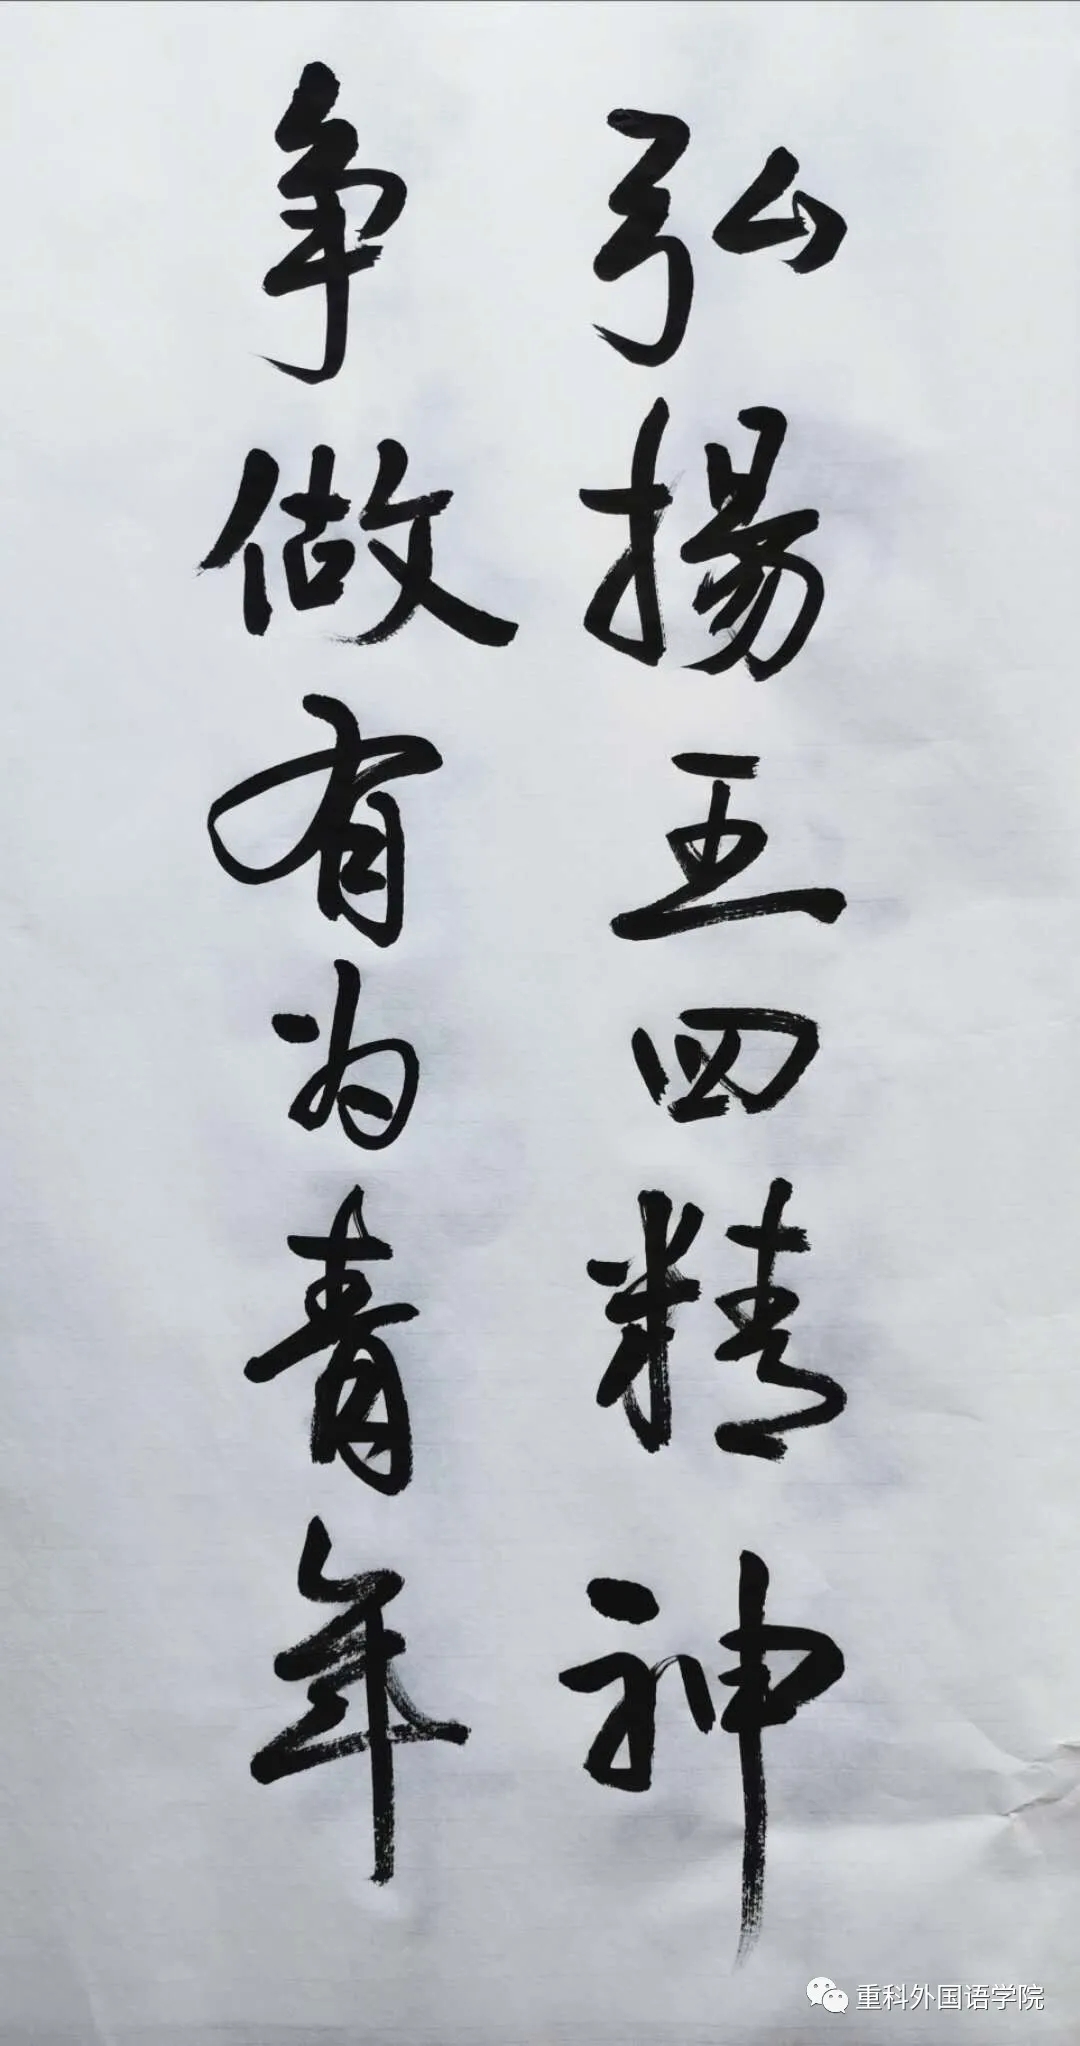 弘揚五四精神
争做有为青年
重科外国语学院